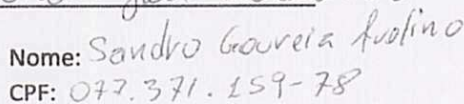 Nome: Sandro Gouveia Avelino
CPF: 077.371.159-78